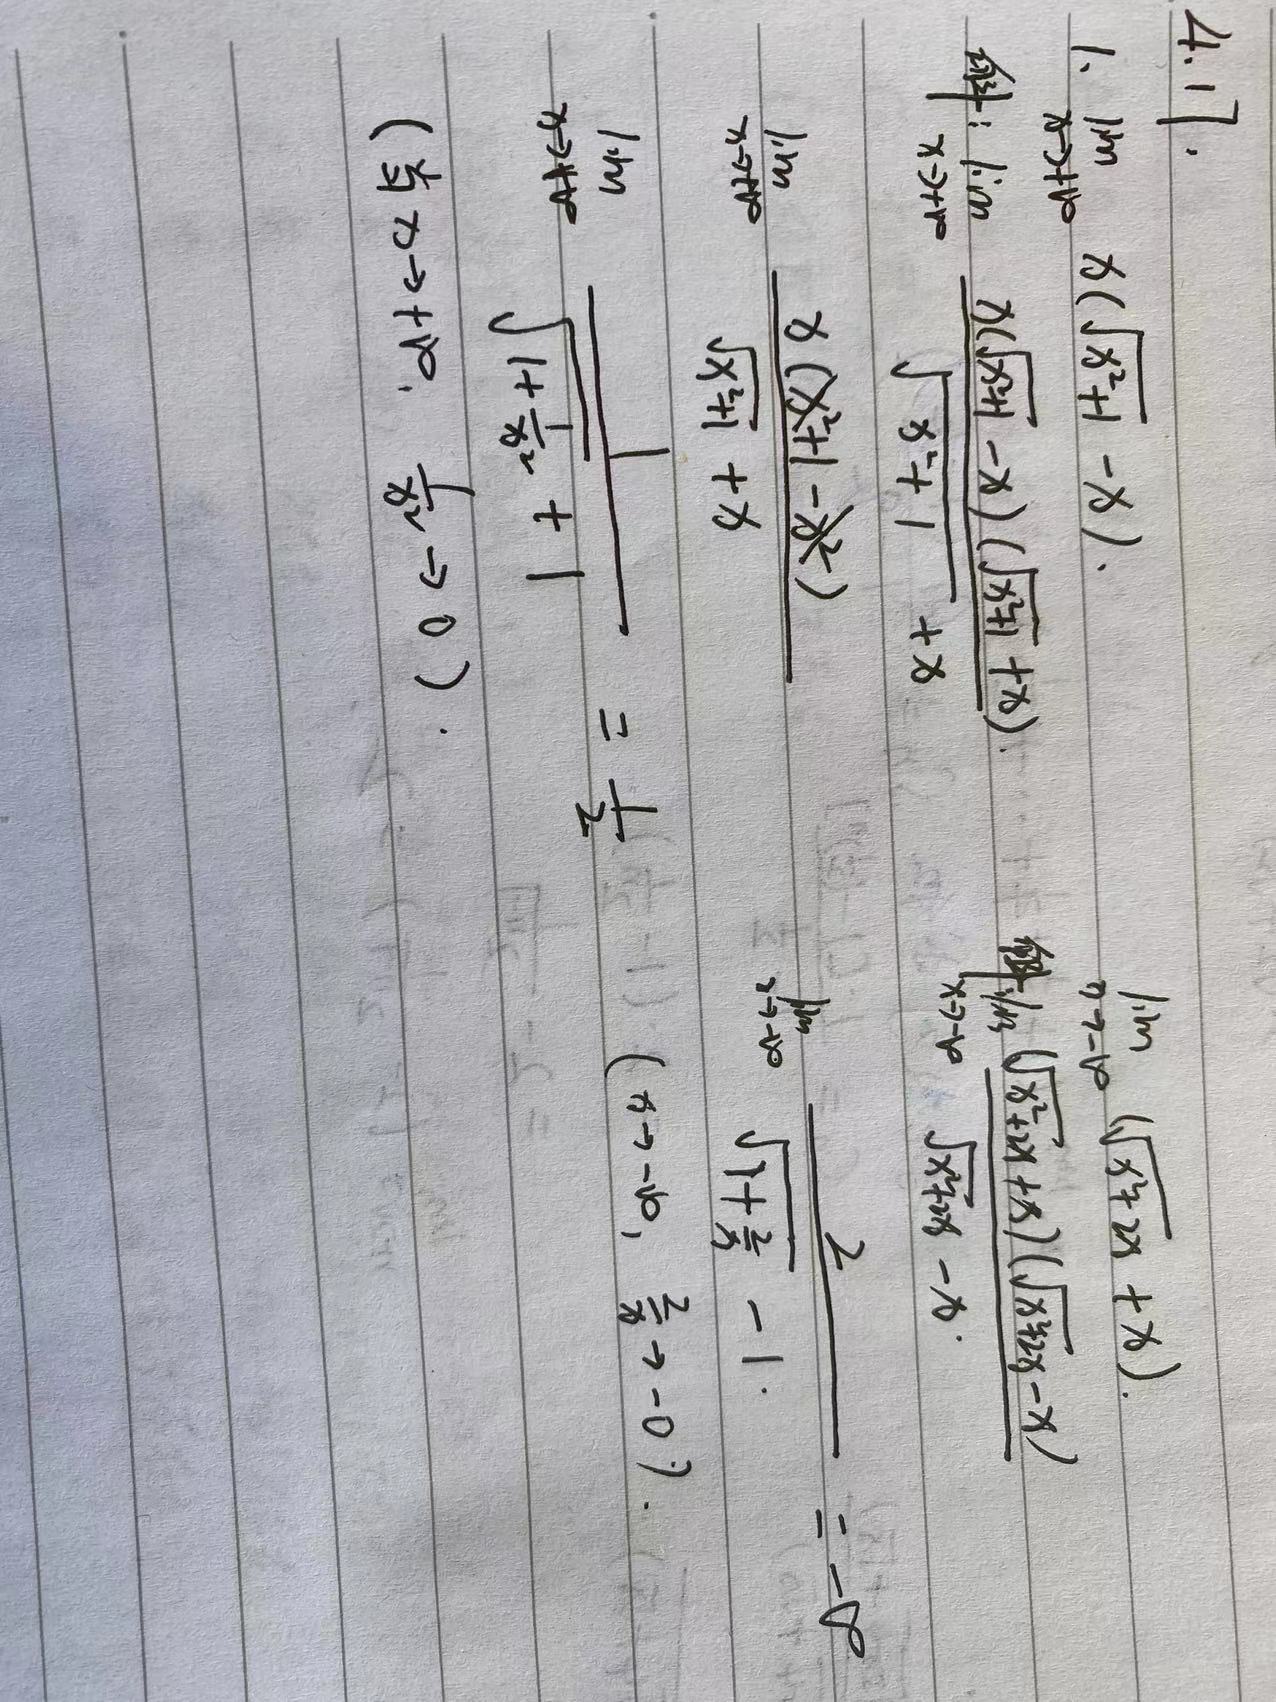 4.17.
1、 lim x→+∞ x(√(x²+1) - x).
解: lim x→+∞ x(√(x²+1) - x)(√(x²+1) + x). / √(x²+1) + x
lim x→+∞ x(x²+1-x²) / √(x²+1) + x
lim x→+∞ 1 / √(1+1/x²) + 1 = 1/2
(当x→+∞, 1/x² → 0).
lim x→-∞ (√(x²+2x) + x).
解: lim x→-∞ (√(x²+2x) + x)(√(x²+2x) - x) / √(x²+2x) - x.
lim x→-∞ 2 / √(1+2/x) - 1. = -∞
(x→-∞, 2/x → -0).